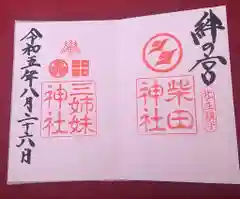 絆の宮
柴田
神社
三姉妹
神社
令和五年八月二十六日